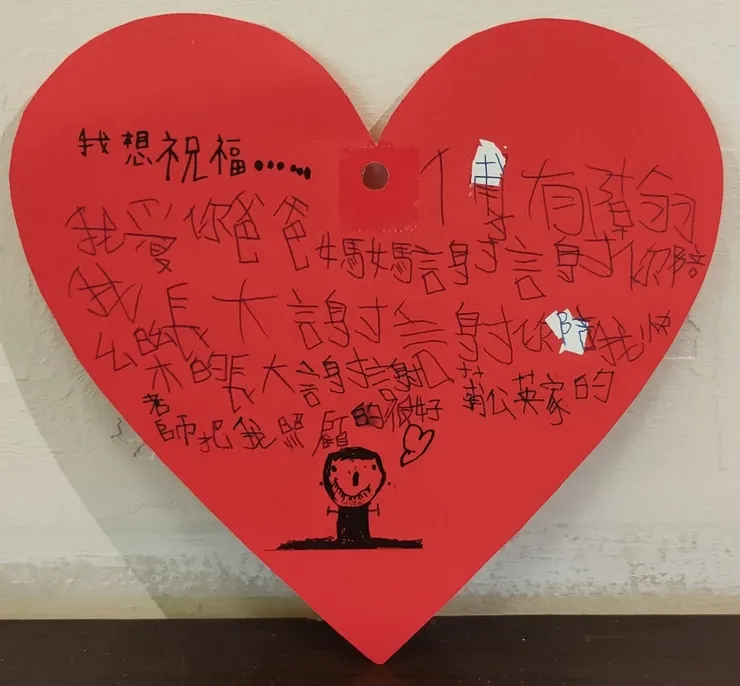 我想祝福……
有 的
我愛你爸爸媽媽謝謝你陪
我長大謝謝你陪我快
樂的長大謝謝蒲公英家的
老師把我照顧的很好